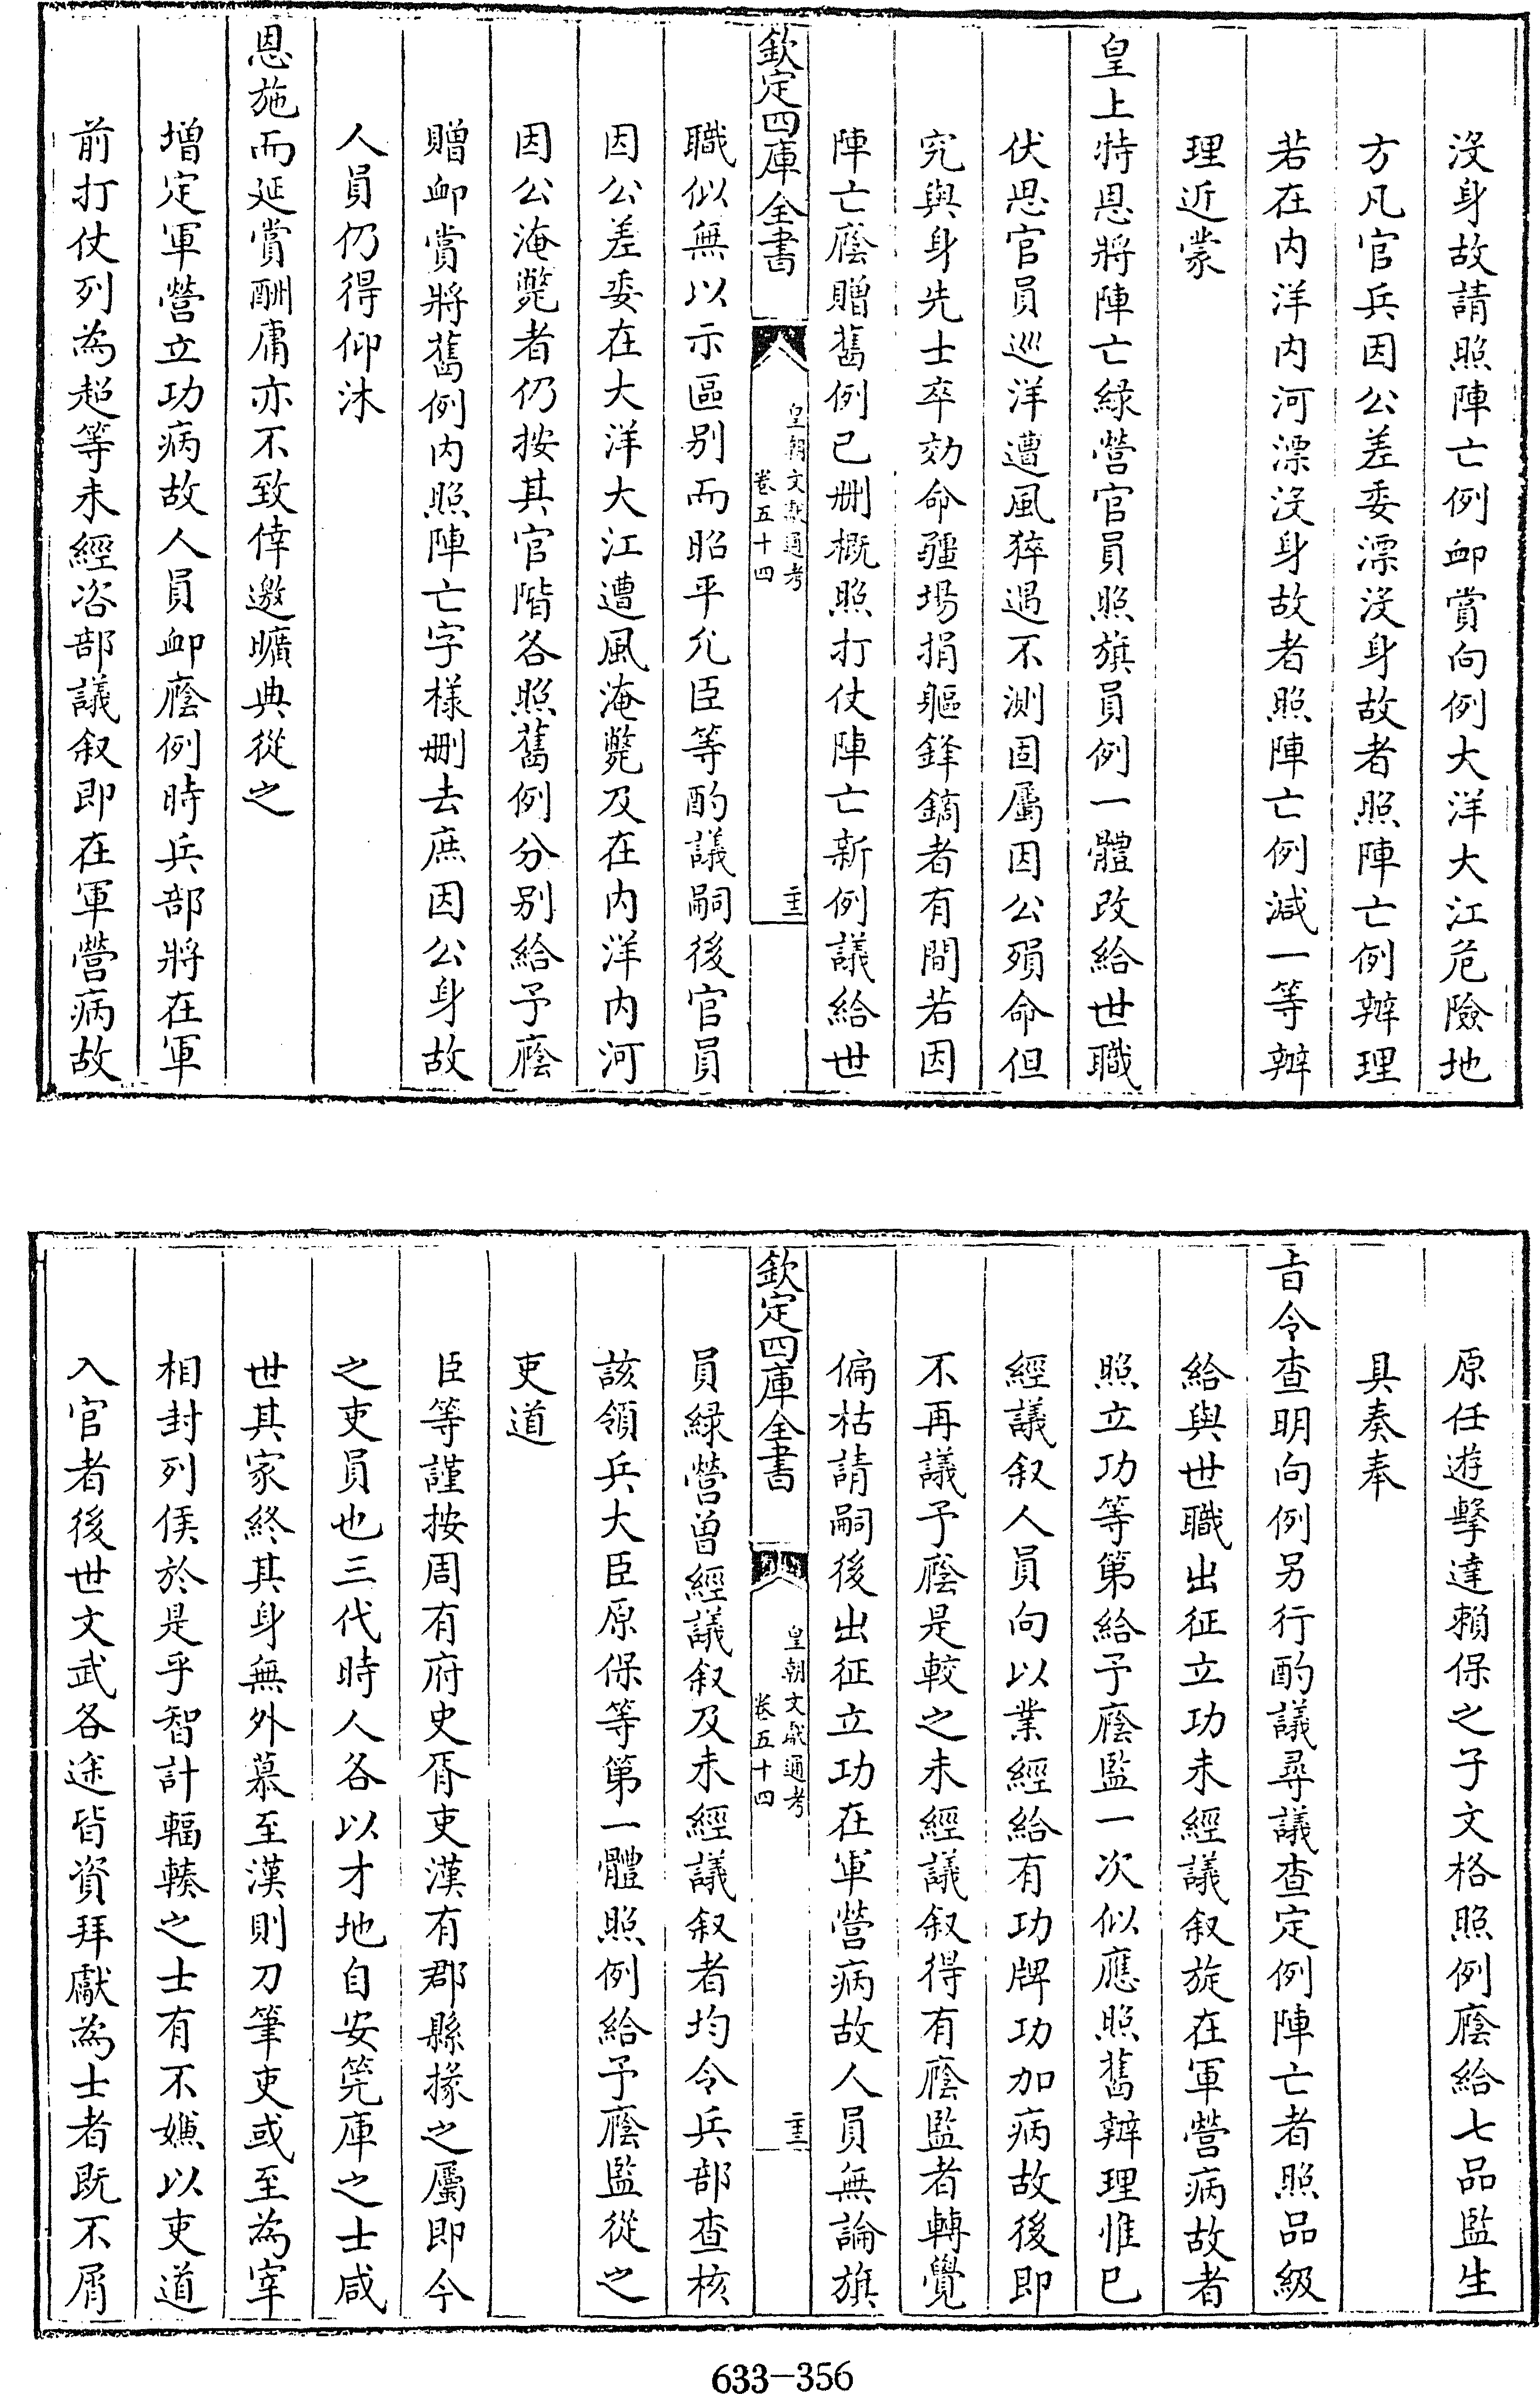 沒身故請照陣亡例䘏賞向例大洋大江危險地
方凡官兵因公差委漂沒身故者照陣亡例辦理
若在内洋内河漂沒身故者照陣亡例減一等辦
理近蒙
皇上特恩將陣亡緑營官員照旗員例一體改給世職
伏思官員巡洋遭風猝遇不測固屬因公殞命但
究與身先士卒効命疆場捐軀鋒鏑者有間若因
陣亡廕贈舊例已刪概照打仗陣亡新例議給世
欽定四庫全書
皇朝文獻通考
卷五十四
職似無以示區别而昭平允臣等酌議嗣後官員
因公差委在大洋大江遭風淹斃及在内洋内河
因公淹斃者仍按其官階各照舊例分别給予廕
贈䘏賞將舊例内照陣亡字様刪去庶因公身故
人員仍得仰沐
恩施而延賞酬庸亦不致倖邀曠典從之
增定軍營立功病故人員䘏廕例時兵部將在軍
前打仗列為超等未經咨部議叙即在軍營病故
原任遊擊達賴保之子文格照例廕給七品監生
具奏奉
㫖令查明向例另行酌議尋議查定例陣亡者照品級
給與世職出征立功未經議叙旋在軍營病故者
照立功等第給予廕監一次似應照舊辦理惟已
經議叙人員向以業經給有功牌功加病故後即
不再議予廕是較之未經議叙得有廕監者轉覺
偏枯請嗣後出征立功在軍營病故人員無論旗
欽定四庫全書
皇朝文獻通考
卷五十四
員緑營曾經議叙及未經議叙者均令兵部查核
該領兵大臣原保等第一體照例給予廕監從之
吏道
臣等謹按周有府史胥吏漢有郡縣掾之屬即今
之吏員也三代時人各以才地自安筦庫之士咸
世其家終其身無外慕至漢則刀筆吏或至為宰
相封列侯於是乎智計輻輳之士有不嫌以吏道
入官者後世文武各途皆資拜獻為士者既不屑
633-356